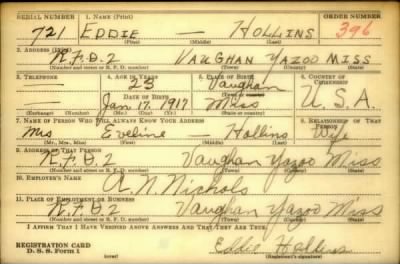 SERIAL NUMBER 1. NAME (Print) ORDER NUMBER
721 EDDIE — HOLLINS 396
(First) (Middle) (Last)
2. ADDRESS (Print)
R.F.D.2 VAUGHAN YAZOO MISS
(Number and street or R. F. D. number) (Town) (County) (State)
3. TELEPHONE 4. AGE IN YEARS 5. PLACE OF BIRTH 6. COUNTRY OF CITIZENSHIP
— 23 Vaughan
DATE OF BIRTH (Town or county)
— Jan 17. 1917 Miss U.S.A.
(Exchange) (Number) (Mo.) (Day) (Yr.) (State or country)
7. NAME OF PERSON WHO WILL ALWAYS KNOW YOUR ADDRESS 8. RELATIONSHIP OF THAT PERSON
Mrs Eveline — Hollins Wife
(Mr., Mrs., Miss) (First) (Middle) (Last)
9. ADDRESS OF THAT PERSON
R.F.D.2 Vaughan Yazoo Miss
(Number and street or R. F. D. number) (Town) (County) (State)
10. EMPLOYER'S NAME
A. N. Nichols
11. PLACE OF EMPLOYMENT OR BUSINESS
R.F.D.2 Vaughan Yazoo Miss
(Number and street or R. F. D. number) (Town) (County) (State)
I AFFIRM THAT I HAVE VERIFIED ABOVE ANSWERS AND THAT THEY ARE TRUE.
REGISTRATION CARD
D. S. S. Form 1 (over) Eddie Hollins